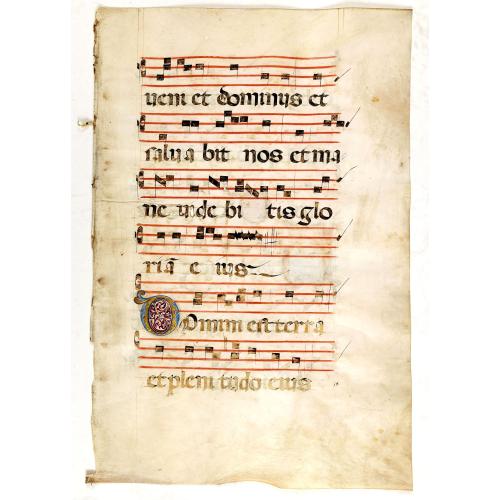 veni et dominus et
salva bit nos et ma
ne videbi tis glo
riā e ius
Domini est terra
et pleni tudo eius